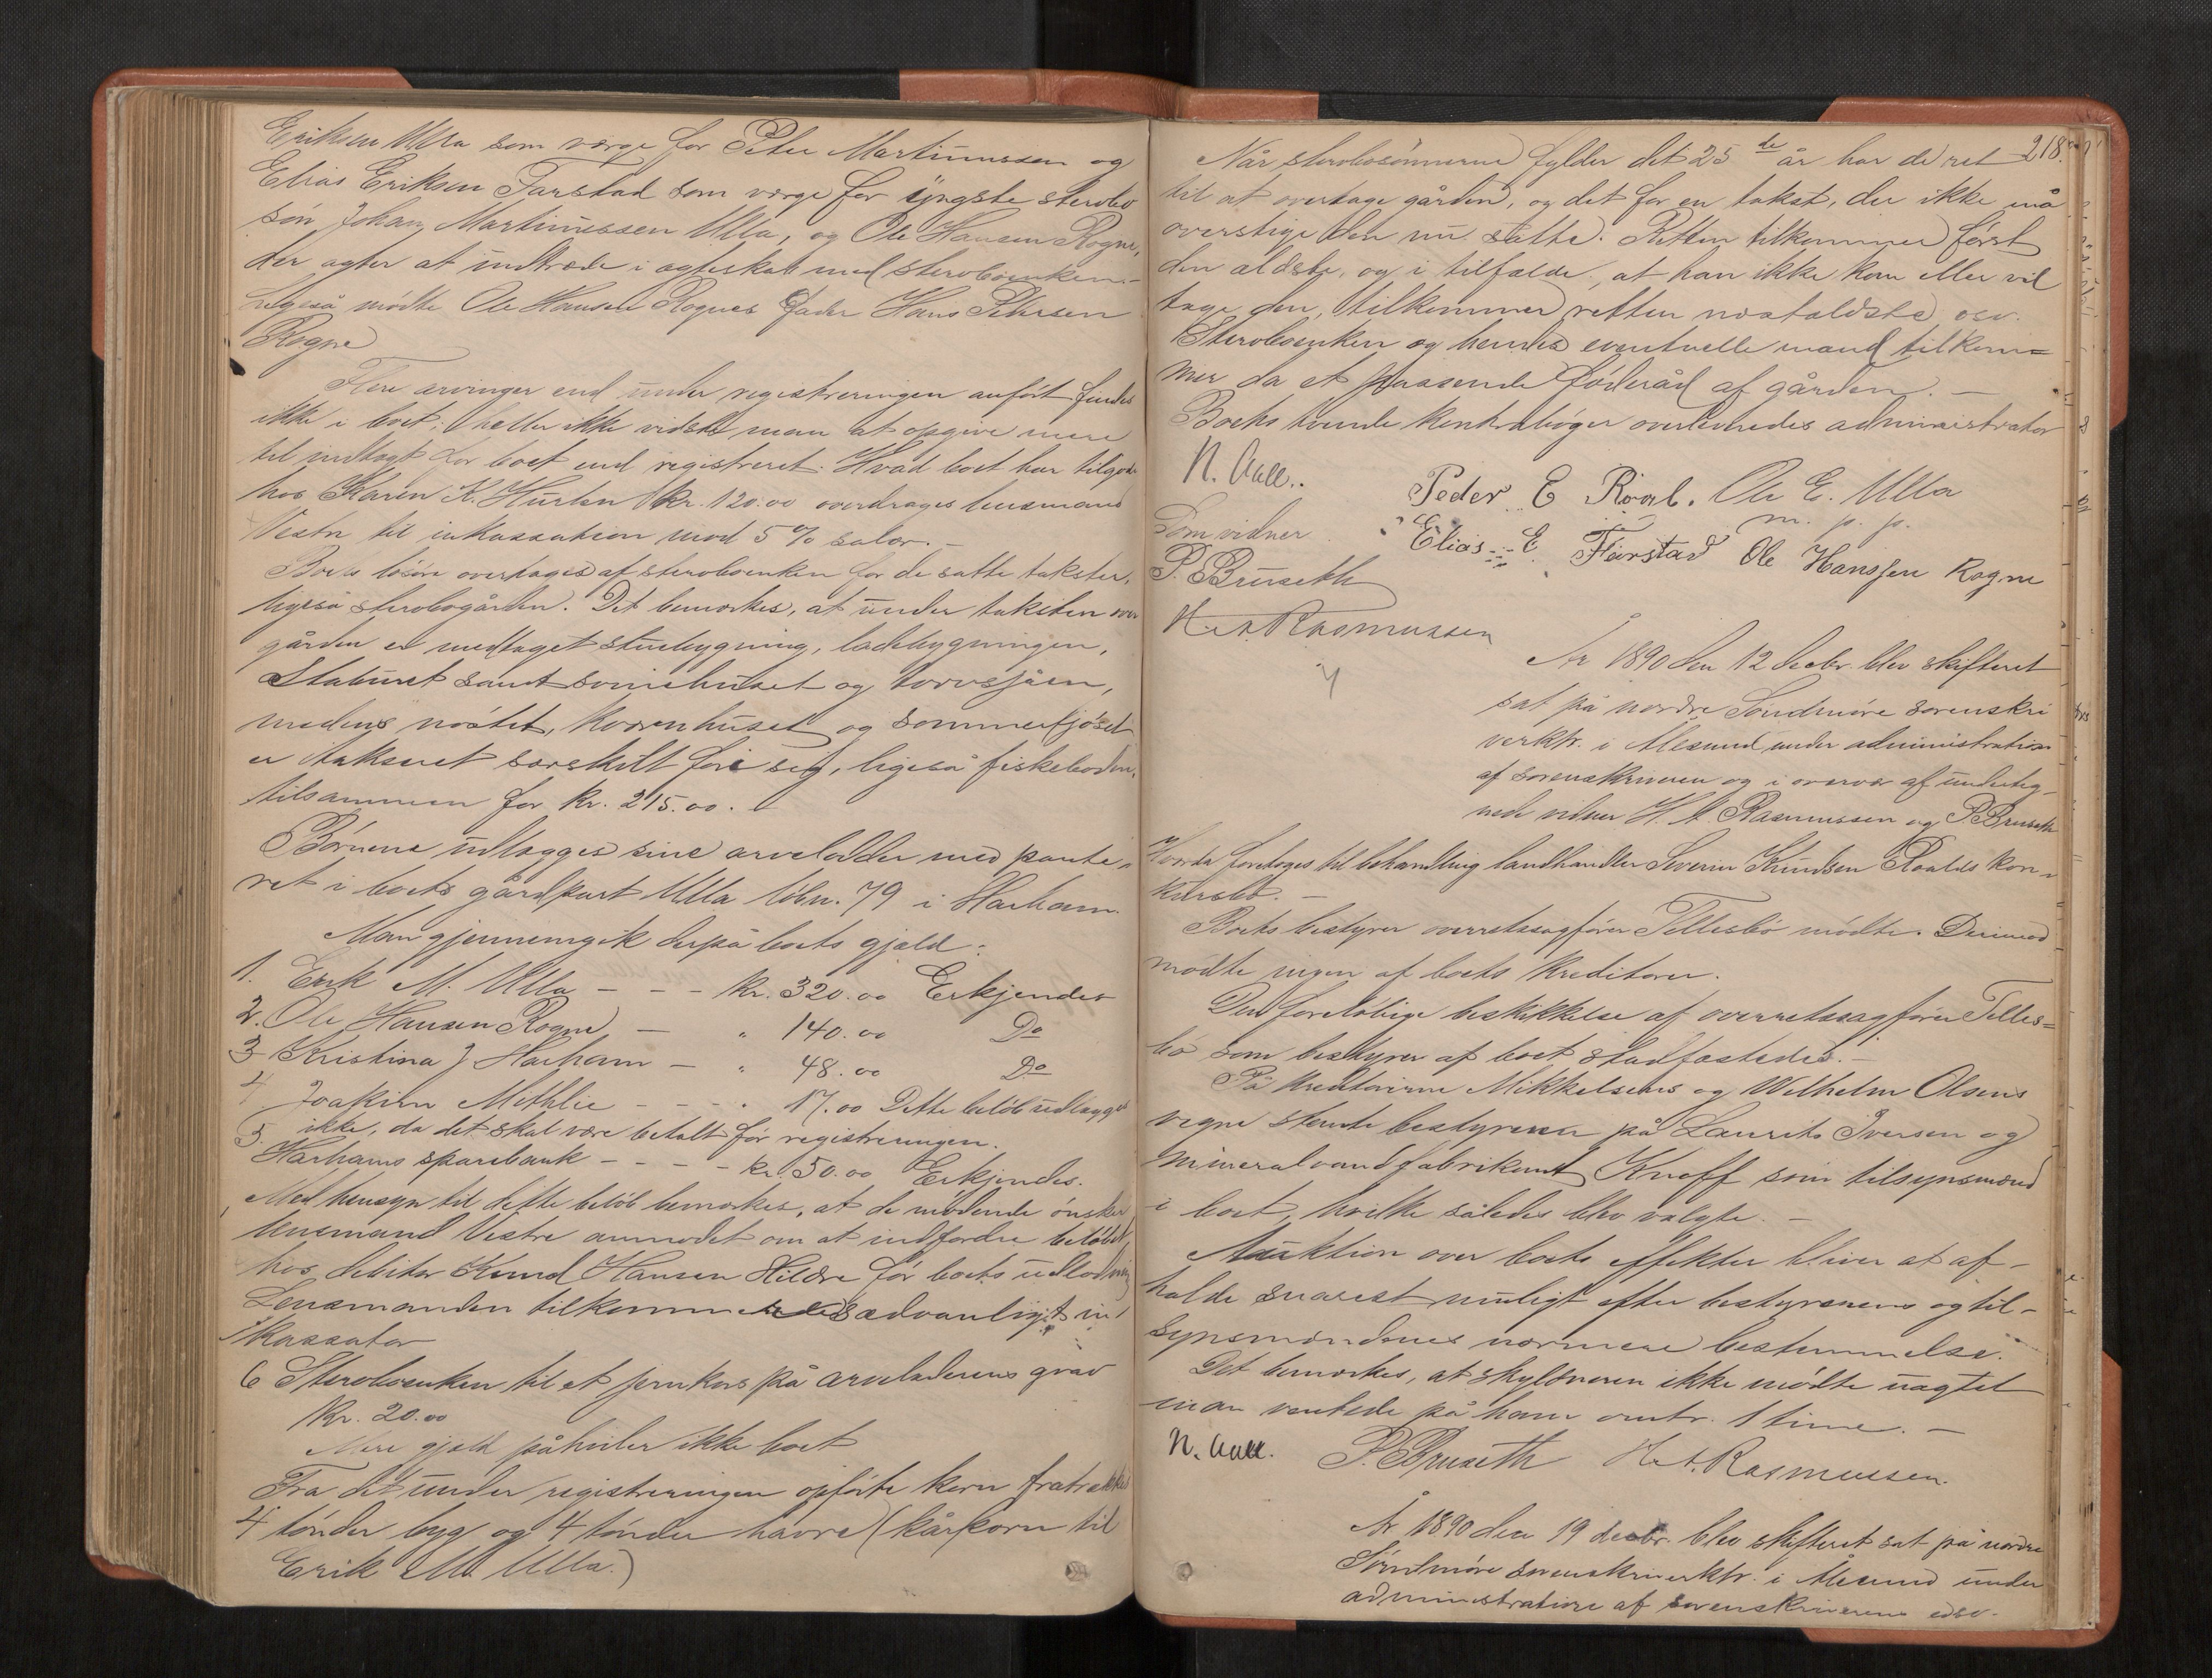 Eriksen Ulla som værge for Peter Martinussen og
Elias Eriksen Farstad som værge for yngste sterbo
søn Johan Martinussen Ulla, og Ole Hansen Rogne,
der agter at indtræde i ægteskab med sterboenken.
Ligeså mødte Ole Hansen Rognes fader Hans Petersen
Rogne
Flere arvinger end under registreringen anført findes
ikke i boet; heller ikke vidste man at opgive mere
til indtægt for boet end registreret. Hvad boet har tilgode
hos Karen K. Hurlen kr. 120.00 overdrages lensmand
Vestre til inkassation mod 5 % salær. –
Boets løsøre overtages af sterboenken for de satte takster,
ligeså sterbogården. Det bemærkes, at under taksten over
gården er medtaget stuebygning, ladebygningen,
Staburet samt svinehuset og torvsjåen,
medens nøstet, kværnhuset og sommerfjøset
er takseret særskilt for sig, ligeså fiskeboden,
tilsammen for kr. 215.00.
Børnene udlægges sine arvelodder med pante-
ret i boets gårdpart Ulla løbn. 79 i Harham.
Man gjennemgik derpå boets gjæld:
1. Erik M. Ulla – – – kr. 320.00 Erkjendes
2. Ole Hansen Rogne – " 140.00 Do
3 Kristina J Harham – " 48.00 Do
4 Joakim Methlie – – – " 17.00 Dette beløb udlægges
ikke, da det skal være betalt før registreringen.
5. Harhams sparebank – – – – kr. 50.00 Erkjendes.
Med hensyn til dette beløb bemærkes, at de mødende ønsker
lensmand Vestre anmodet om at indfordre beløbet
hos debitor Knud Hansen Hildre før boets udlodning
Lensmanden tilkommer sædvanligt in
kassator
6 Sterboenken til et jernkors på arveladerens grav
Kr. 20.00
Mere gjæld påhviler ikke boet
Fra det under registreringen opførte korn fratrækkes
4 tønder byg og 4 tønder havre (kårkorn til
Erik M. Ulla.)
218.
Når sterbosønnerne fylder det 25de år har de ret
til at overtage gården, og det for en takst, der ikke må
overstige den nu satte. Retten tilkommer først
den ældste, og i tilfælde, at han ikke kan eller vil
tage den, tilkommer retten næstældste osv.
Sterboenken og hendes eventuelle mand tilkom-
mer da et passende føderåd af gården. –
Boets tvende kontrabøger overleveredes administrator
N. Aall..
Peder E Roal. Ole E. Ulla
m. p. p.
Som vidner
Elias E. Farstad Ole Hanssen Rogne
P. Bruseth
H. A. Rasmussen
År 1890 den 12 decbr. blev skifteret
sat på nordre Søndmøre sorenskri
verktr. i Ålesund under administration
af sorenskriveren og i overvær af underteg-
nede vidner H. A. Rasmussen og P. Bruseth
Hvorda foretoges til behandling landhandler Severin Knudsen Roalds kon-
kursbo. –
Boets bestyrer overretssagfører Tellesbø mødte. Derimod
mødte ingen af boets kreditorer.
Den foreløbige beskikkelse af overretssagfører Telles=
bø som bestyrer af boet stadfæstedes. –
På kreditorerne Mikkelsens og Wilhelm Olsens
vegne stemte bestyreren på Laurits Iversen og
mineralvandfabrikant Knoff som tilsynsmænd
i boet, hvilke således blev valgte. –
Auktion over boets effekter bliver at af-
holde snarest muligt efter bestyrerens og til-
synsmændenes nærmere bestemmelse.
Det bemærkes, at skyldneren ikke mødte uagtet
man ventede på ham omtr. 1 time. –
N. Aall. P. Bruseth H. A. Rasmussen.
År 1890 den 19 decbr. blev skifteret sat på nordre
Søndmøre sorenskriverktr. i Ålesund under
administration af sorenskriverens edsv.